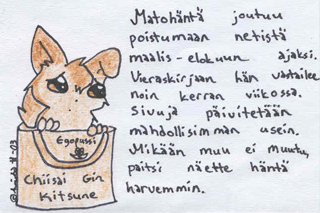 Matohäntä joutuu
poistumaan netistä
maalis-elokuun ajaksi.
Vieraskirjaan hän vastailee
noin kerran viikossa.
Sivuja päivitetään
mahdollisimman usein.
Mikään muu ei muutu,
paitsi näette häntä
harvemmin.
Egopussi
Chiisai Gin
Kitsune